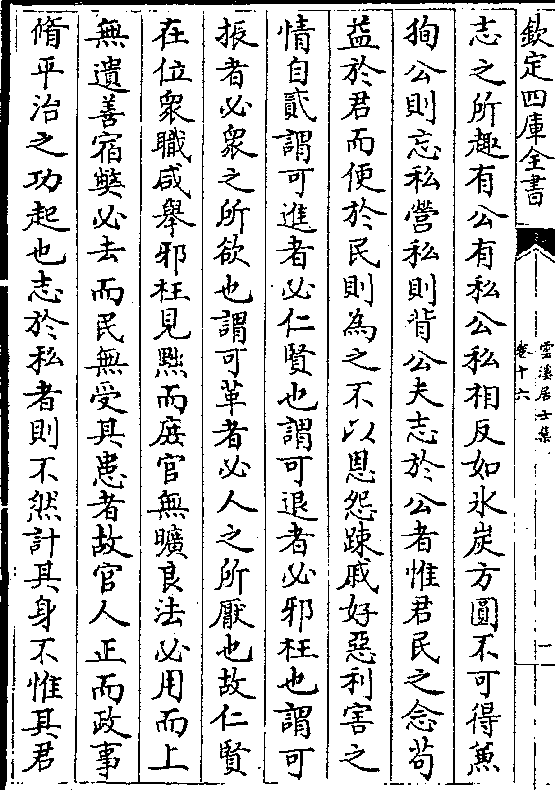 欽定四庫全書
雲溪居士集
卷十六
一
志之所趣有公有私公私相反如氷炭方圓不可得兼
狥公則忘私營私則背公夫志於公者惟君民之念苟
益於君而便於民則為之不以恩怨踈戚好惡利害之
情自貳謂可進者必仁賢也謂可退者必邪枉也謂可
振者必衆之所欲也謂可革者必人之所厭也故仁賢
在位衆職咸舉邪枉見黜而庭官無曠良法必用而上
無遺善宿弊必去而民無受其患者故官人正而政事
脩平治之功起也志於私者則不然計其身不惟其君